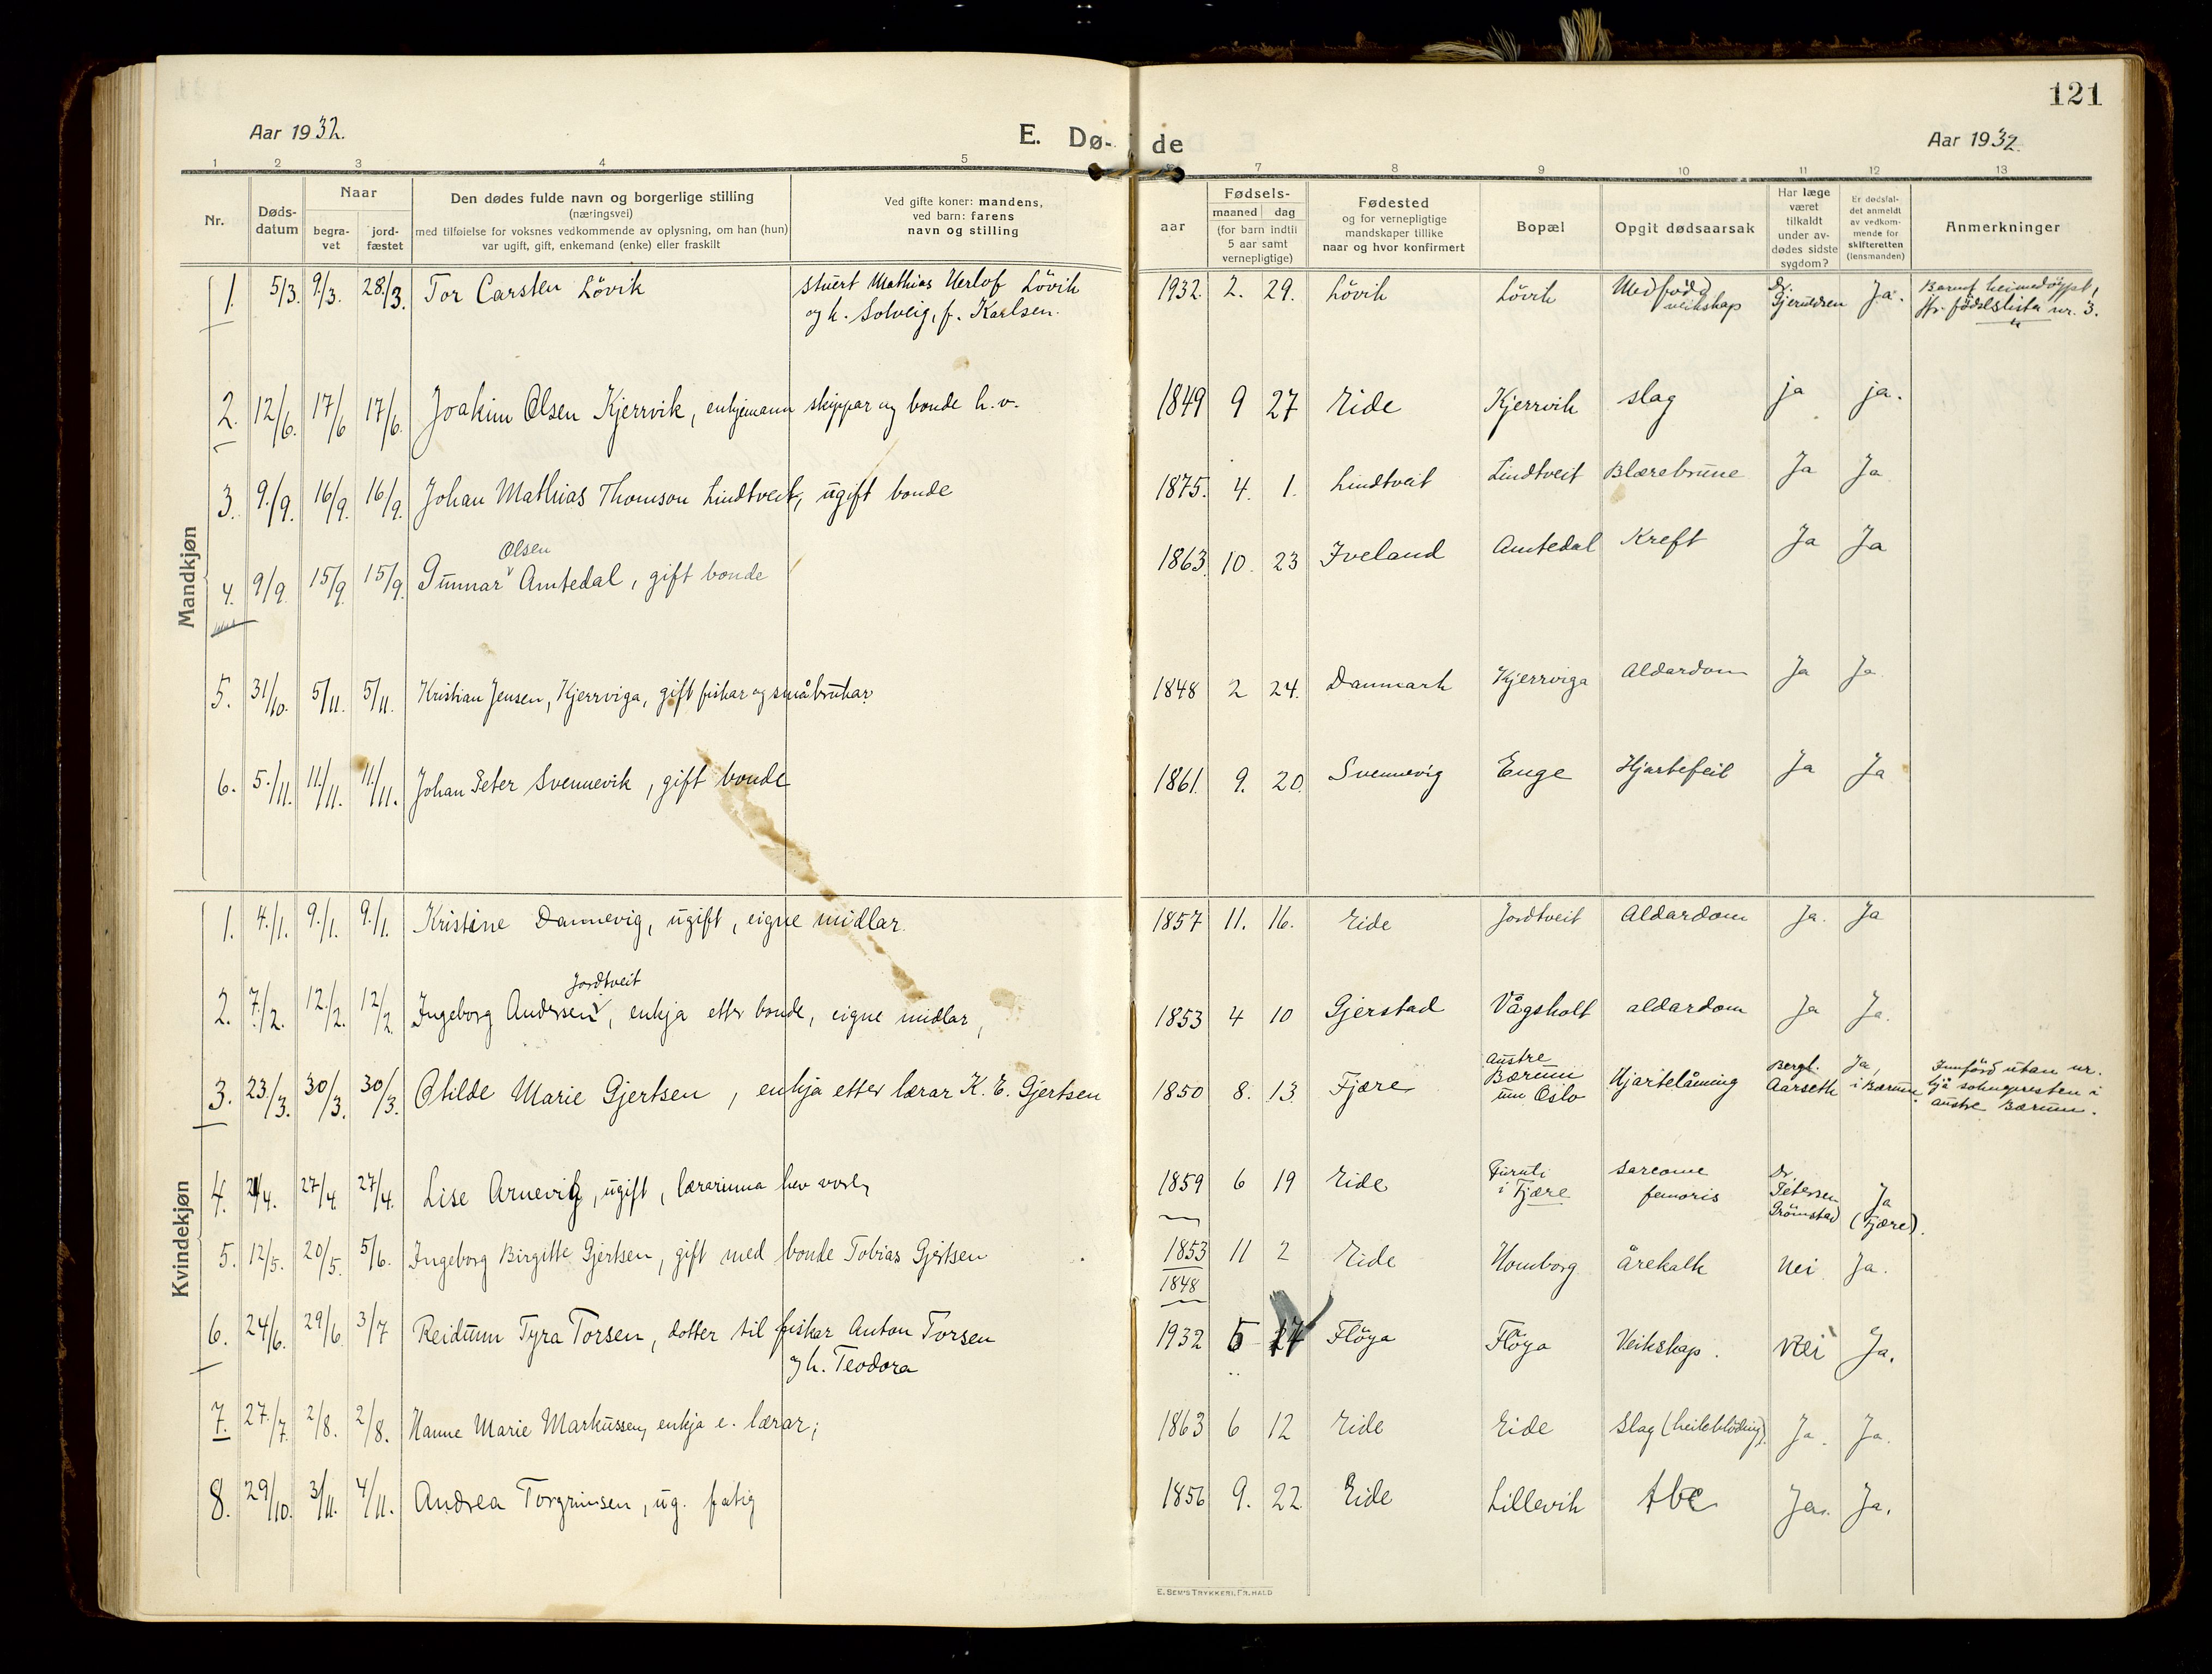 121
Aar 1932.
E. Dø-
de
Aar 1932.
1 2 3 4 5 7 8 9 10 11 12 13
Nr.
Døds-
datum
Naar
begra-
vet
jord-
fæstet
Den dødes fulde navn og borgerlige stilling
(næringsvei)
med tilføielse for voksnes vedkommende av oplysning, om han (hun)
var ugift, gift, enkemand (enke) eller fraskilt
Ved gifte koner: mandens,
ved barn: farens
navn og stilling
aar
Fødsels-
maaned dag
(for barn indtil
5 aar samt
vernepligtige)
Fødested
og for vernepligtige
mandskaper tillike
naar og hvor konfirmert
Bopæl
Opgit dødsaarsak
Har læge
været
tilkaldt
under av-
dødes sidste
sygdom?
Er dødsfal-
det anmeldt
av vedkom-
mende for
skifteretten
(lensmanden)
Anmerkninger
Mandkjøn
1. 5/3. 9./3. 28./3. Tor Carsten Lövik stuert Mathias Herlof Lövik
og h. Solveig, f. Karlsen.
1932. 2. 29. Lövik Lövik Medfödd
veikskap
Dr.
Gjeruldsen Ja. Barnet heimedöypt,
jfr. födselslista nr. 3.
2. 12/6. 17/6 17/6. Joakim Olsen Kjerrvik, enkjemann skippar og bonde h.v. 1849 9 27 Eide Kjerrvik slag ja ja.
3. 9./9. 16/9. 16/9. Johan Mathias Thomson Lindtveit, ugift bonde 1875. 4. 1. Lindtveit Lindtveit Blærebrune Ja Ja
Olsen
4. 9/9. 15/9. 15/9. Gunnar Amtedal, gift bonde 1863. 10. 23 Iveland Amtedal Kreft Ja Ja
5. 31/10. 5/11. 5/11. Kristian Jensen, Kjerrviga, gift fiskar og småbrukar. 1848 2 24. Danmark Kjerrviga Aldardom Ja Ja
6. 5./11. 11./11. 11/11. Johan Peter Svennevik, gift bonde 1861. 9. 20. Svennevig Enge Hjartefeil Ja Ja
Kvindekjøn
1. 4./1. 9./1. 9./1. Kristine Dannevig, ugift, eigne midlar. 1857 11. 16. Eide Jordtveit Aldardom Ja. Ja
Jordtveit
2. 7./2. 12./2. 12/2. Ingeborg Andersen, enkja etter bonde, eigne midlar, 1853 4 10 Gjerstad Vågsholt aldardom Ja Ja.
3. 23./3. 30/3. 30/3. Otilde Marie Gjertsen, enkja etter lærar K. E. Gjertsen 1850 8. 13. Fjære austre
Bærum
um Oslo Hjartelåming Bergl.
Aarseth Ja,
i Bærum. Innförd utan nr.
hjå sokneprestén i
austre Bærum.
4. 21/4. 27/4. 27/4. Lise Arnevig, ugift, lærarinna hev vore, 1859 6 19 Eide
i Fjære Sarcome
femoris Dr.
Petersen
Grömstad Ja
(Fjære).
5. 12/5. 20/5. 5/6. Ingeborg Birgitte Gjertsen, gift med bonde Tobias Gjertsen 1853
1848
11 2 Eide Homborg Årekalk Nei Ja.
6. 24/6. 29/6 3/7 Reidunn Tyra Torsen, dotter til fiskar Anton Torsen
og h. Teodora
1932 5 27 Flöya Flöya Veikskap. Nei Ja.
7. 27./7. 2/8. 2/8. Hanne Marie Markussen, enkja e. lærar; 1863 6 12 Eide Eide Slag (heileblöding). Ja. Ja.
8. 29/10. 3/11. 4/11. Andrea Torgrimsen, ug. fatig 1856 9. 22 Eide Lillevik tbc Ja. Ja.
E. SEM'S TRYKKERI, FR.HALD